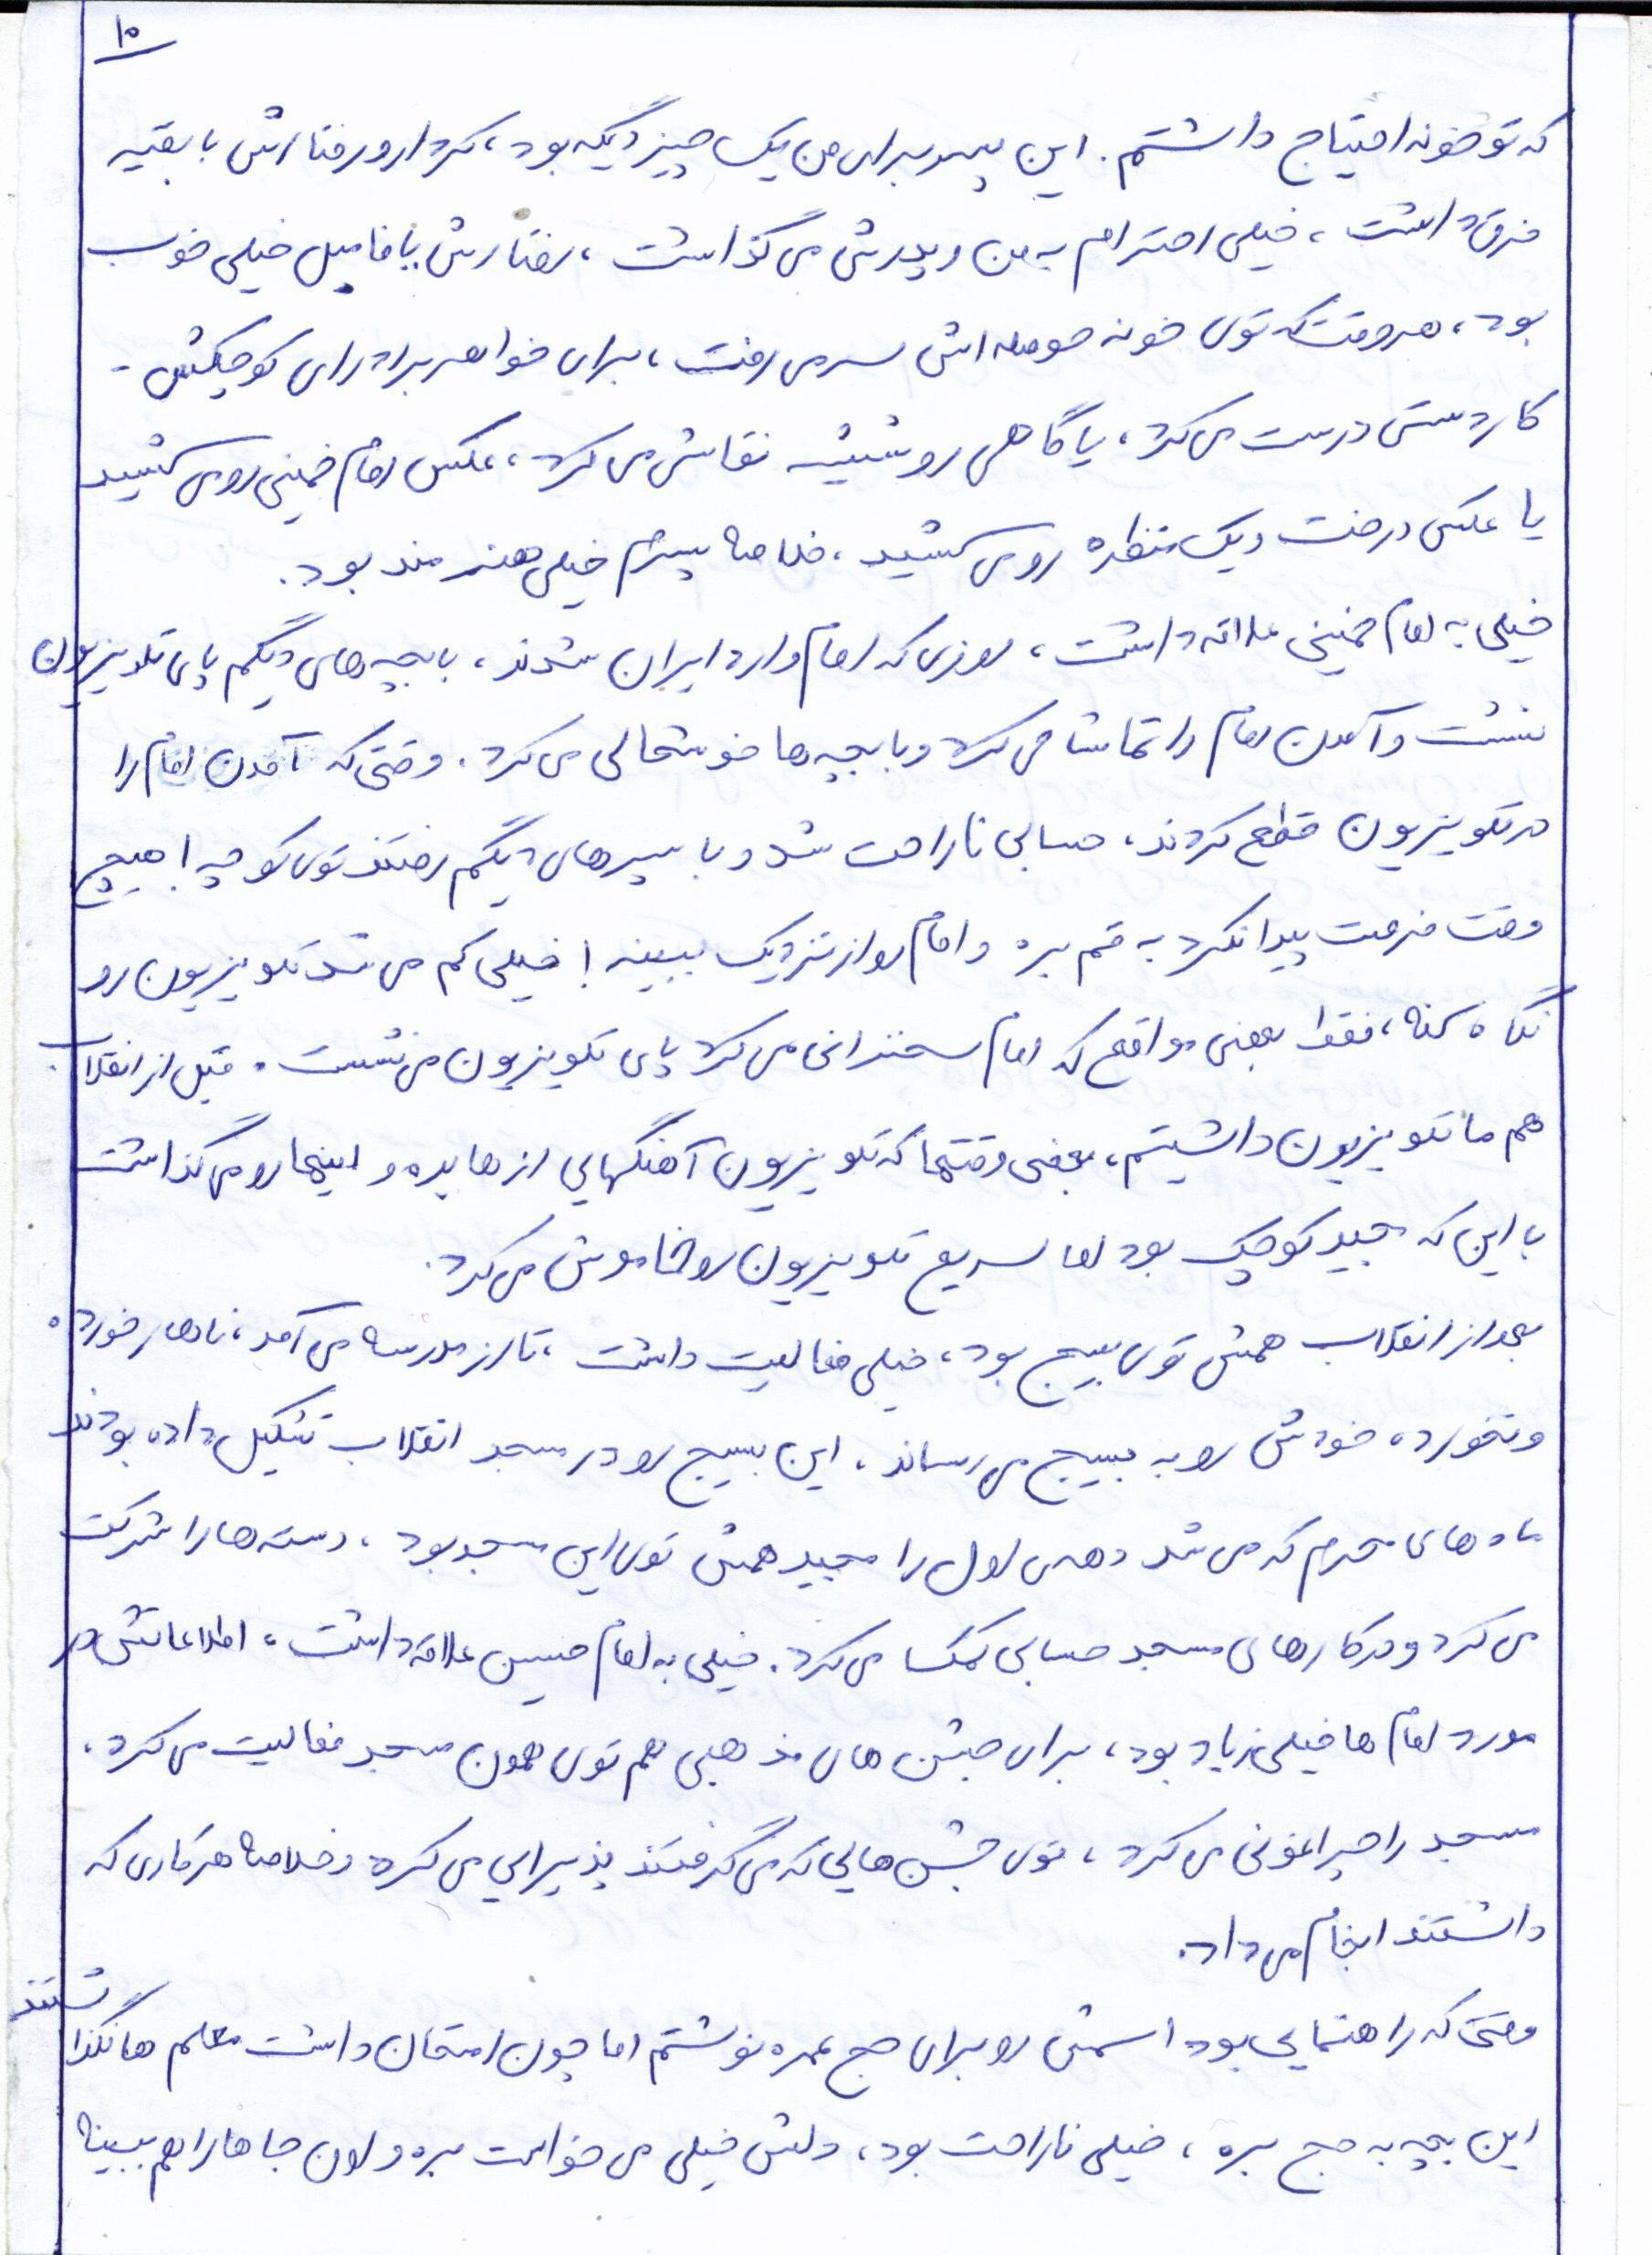 ۱۰
که تو خونه احتیاج داشتم. این پسر برای من یک چیز دیگه بود، کردار و رفتارش با بقیه
فرق داشت، خیلی احترام به من و پدرش می گذاشت، رفتارش با فامیل خیلی خوب
بود، هر وقت که توی خونه حوصله اش سر می رفت، برای خواهر برادرای کوچیکش -
کاردستی درست می کرد، یا گاهی رو شیشه نقاشی می کرد، عکس امام خمینی روی کشید
یا عکس درخت و یک منظره روی کشید، خلاصه پسرم خیلی هنرمند بود.
خیلی به امام خمینی علاقه داشت، روزی که امام وارد ایران شدند، با بچه های دیگم پای تلویزیون
نشست و آمدن امام را تماشا می کرد و با بچه ها خوشحالی می کرد. وقتی که آمدن امام را
در تلویزیون قطع کردند، حسابی ناراحت شد و با پسرهای دیگم رفتند توی کوچه! هیچ
وقت فرصت پیدا نکرد به قم بره و امام رو از نزدیک ببینه! خیلی کم می شد تلویزیون رو
نگاه کنه، فقط بعضی مواقع که امام سخنرانی می کرد پای تلویزیون می نشست. قبل از انقلاب
هم ما تلویزیون داشتیم، بعضی وقتها که تلویزیون آهنگهایی از هایده و اینها رو می گذاشت
با این که مجید کوچیک بود اما سریع تلویزیون رو خاموش می کرد.
بعد از انقلاب همش توی بسیج بود، خیلی فعالیت داشت، تا از مدرسه می آمد، ناهار خورده
و نخورده، خودش رو به بسیج می رساند. این بسیج رو در مسجد انقلاب تشکیل داده بودند
ماه های محرم که می شد دهه ی اول را مجید همش توی این مسجد بود، دسته ها را شرکت
می کرد و در کارهای مسجد حسابی کمک می کرد. خیلی به امام حسین علاقه داشت، اطلاعاتش در
مورد امام ها خیلی زیاد بود، برای جشن های مذهبی هم توی همون مسجد فعالیت می کرد،
مسجد را چراغونی می کرد، توی جشن هایی که می گرفتند پذیرایی می کرد و خلاصه هر کاری که
داشتند انجام می داد.
وقتی که راهنمایی بود اسمش رو برای حج عمره نوشتم اما چون امتحان داشت معلم ها نگذاشتند
این بچه به حج بره، خیلی ناراحت بود، دلش خیلی می خواست بره و اون جاها را هم ببینه